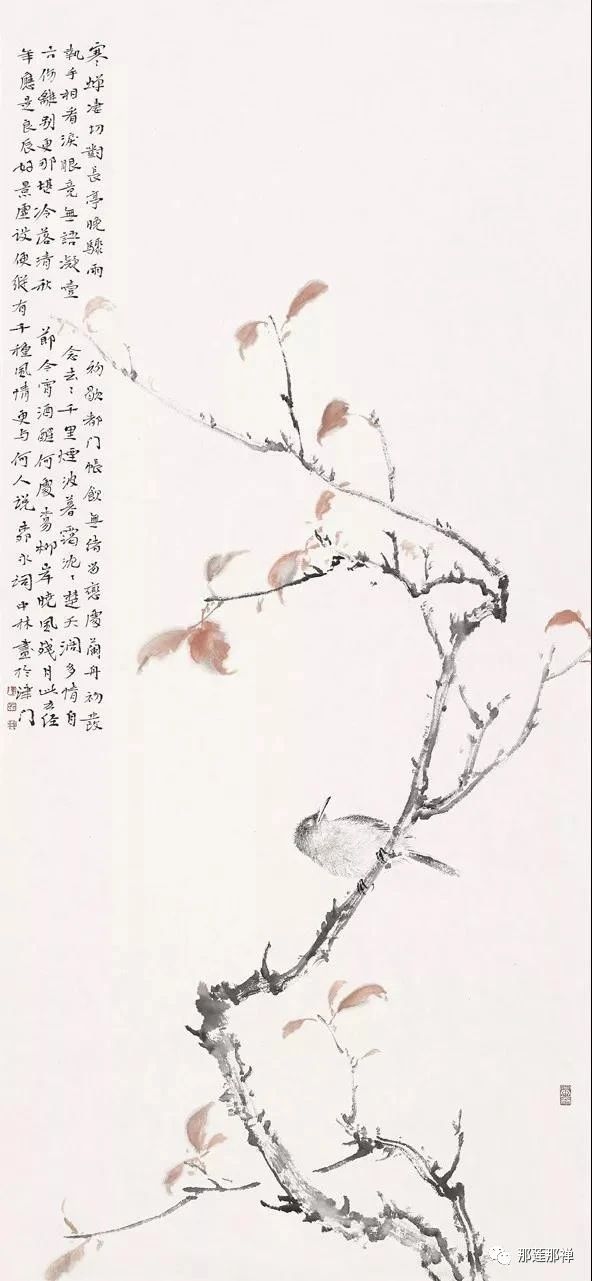 寒蟬淒切對長亭晚驟雨初歇都门帳飲無緒留戀處蘭舟初發
執手相看淚眼竟無語凝噎念去〻千里煙波暮靄沈〻楚天闊多情自
古傷離別更那堪冷落清秋節今宵酒醒何處楊柳岸曉風殘月此去經
年應是良辰好景虛設便縱有千種風情更与何人說柳永词中林畫於津门
那莲那禅